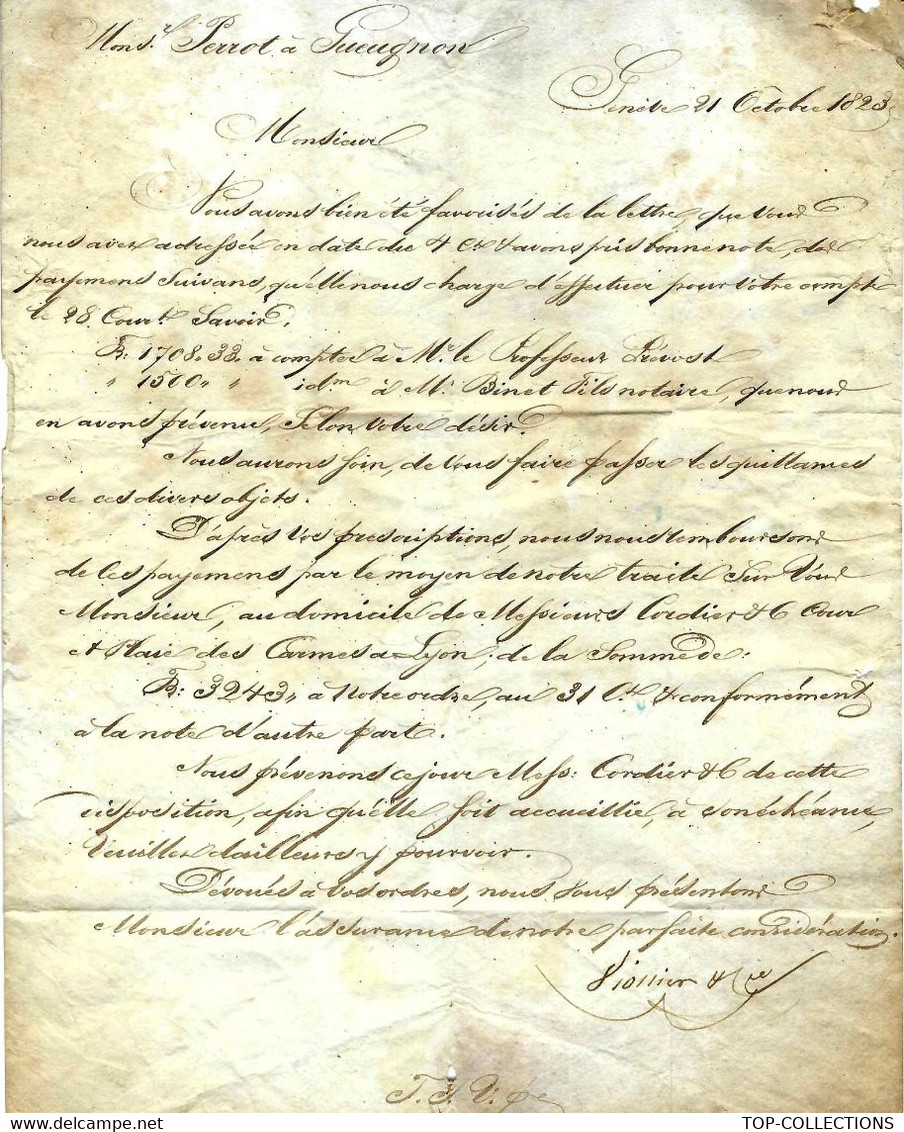 Monsr. Perrot à Gueugnon
Genève 21 Octobre 1823
Monsieur
Nous avons bien été favorisés de la lettre, que vous
nous avez adressée en date du 4 Ct. & avons pris bonne note, des
payemens suivans, qu'elle nous charge d'effectuer pour votre compte
le 28 Courtt. Savoir.
F. 1708.33. à compter à Mr. le Professeur Prévost
" 1500 " " idm à Mr. Binet Fils notaire, que nous
en avons prévenu, selon votre désir.
Nous aurons soin, de vous faire passer les quittances
de ces divers objets.
D'après vos prescriptions, nous nous remboursons
de ces payemens par le moyen de notre traite sur vous
Monsieur, au domicile de Messieurs Cordier & C Cour
et Place des Carmes à Lyon, de la Somme de:
F. 3243 " à notre ordre, au 31 Ct. & conformément
à la note d'autre part.
Nous prévenons ce jour Mess: Cordier & C de cette
disposition, afin qu'elle soit accueillie, à son échéance,
veuillez d'ailleurs y pourvoir.
Dévoués à vos ordres, nous vous présentons
Monsieur l'assurance de notre parfaite considération.
& Cie
T. S. V. p
TOP-COLLECTIONS